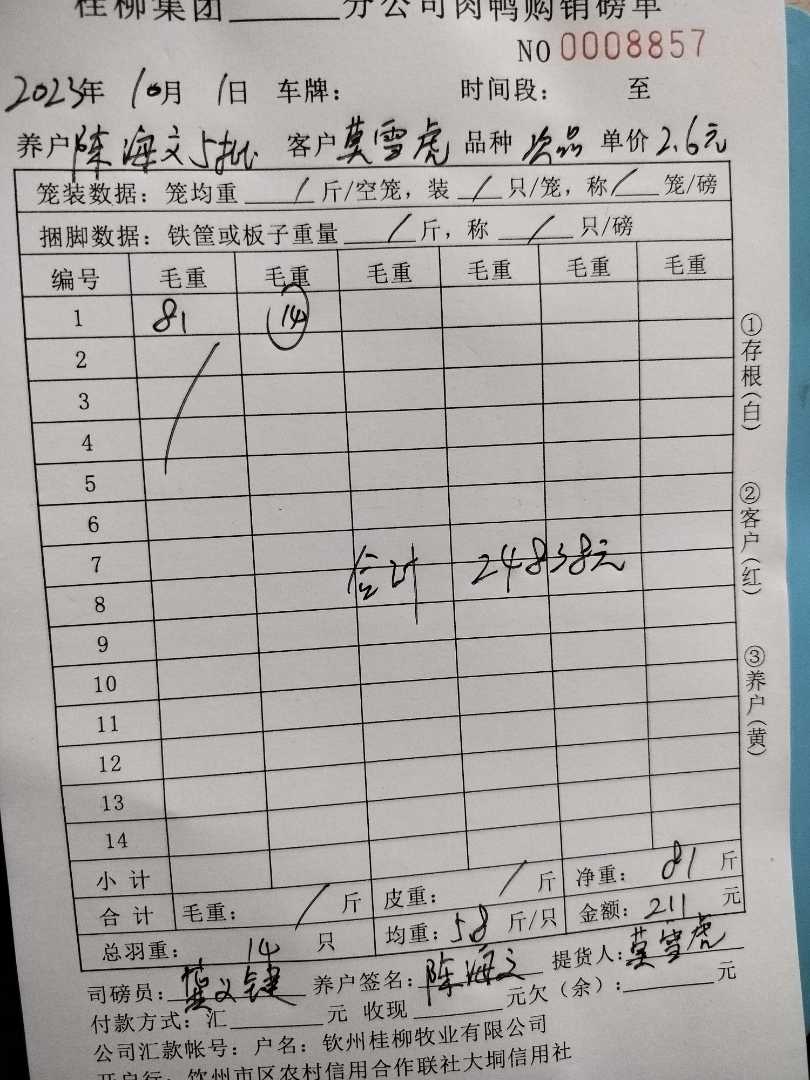 桂柳集团______分公司肉鸭购销磅单
NO 0008857
2023年 10月 1日 车牌： 时间段： 至
养户 陈海文5批 客户 莫雪虎 品种 次品 单价 2.6元
笼装数据：笼均重 / 斤/空笼，装 / 只/笼，称 / 笼/磅
捆脚数据：铁筐或板子重量 / 斤，称 / 只/磅
编号 毛重 毛重 毛重 毛重 毛重 毛重
1 81 14
2
3
4
5
6
7
合计 24838元
8
9
10
11
12
13
14
小计
合计 毛重： / 斤 皮重： / 斤 净重： 81 斤
总羽重： 14 只 均重：58 斤/只 金额：211 元
司磅员： 文键 养户签名：陈海文 提货人：莫雪虎
付款方式：汇______元 收现______元欠（余）：______元
公司汇款帐号：户名：钦州桂柳牧业有限公司
开户行：钦州市区农村信用合作联社大垌信用社
①存根（白）
②客户（红）
③养户（黄）